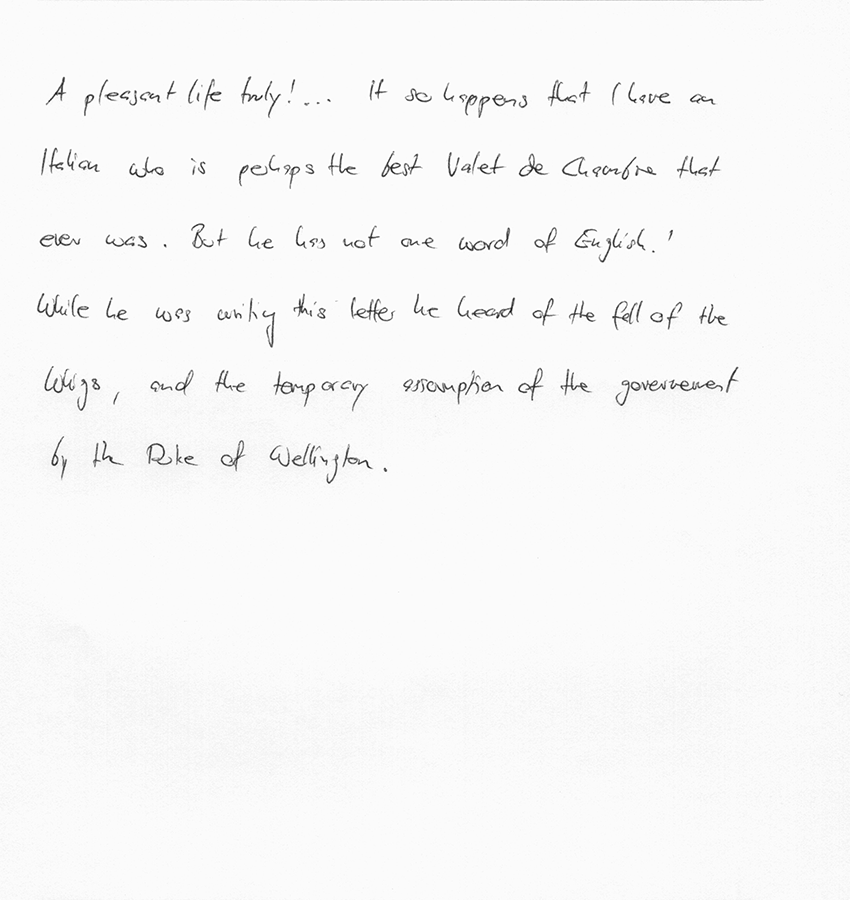 A pleasant life truly!... It so happens that I have an
Italian who is perhaps the best Valet de Chambre that
ever was. But he has not one word of English.'
While he was writing this letter he heard of the fall of the
Whigs, and the temporary assumption of the government
by the Duke of Wellington.